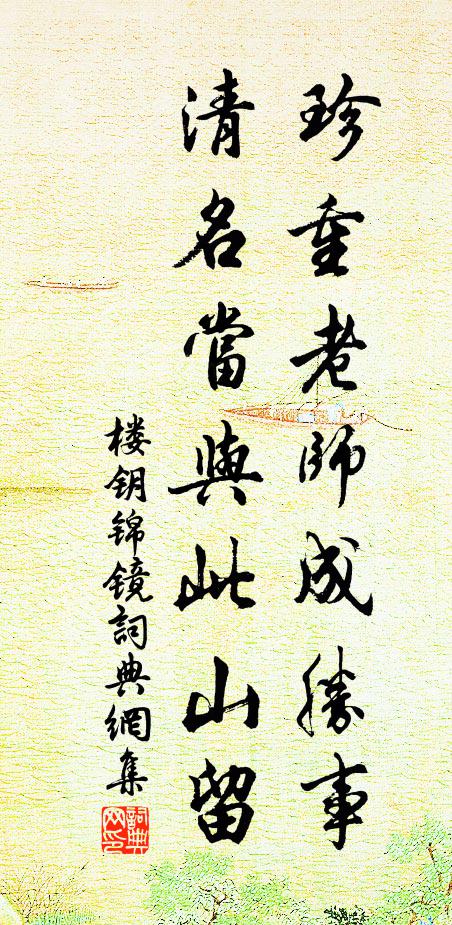 珍重老師成勝事
清名當與此山留
楼钥锦镜詞典網集
詞典网印